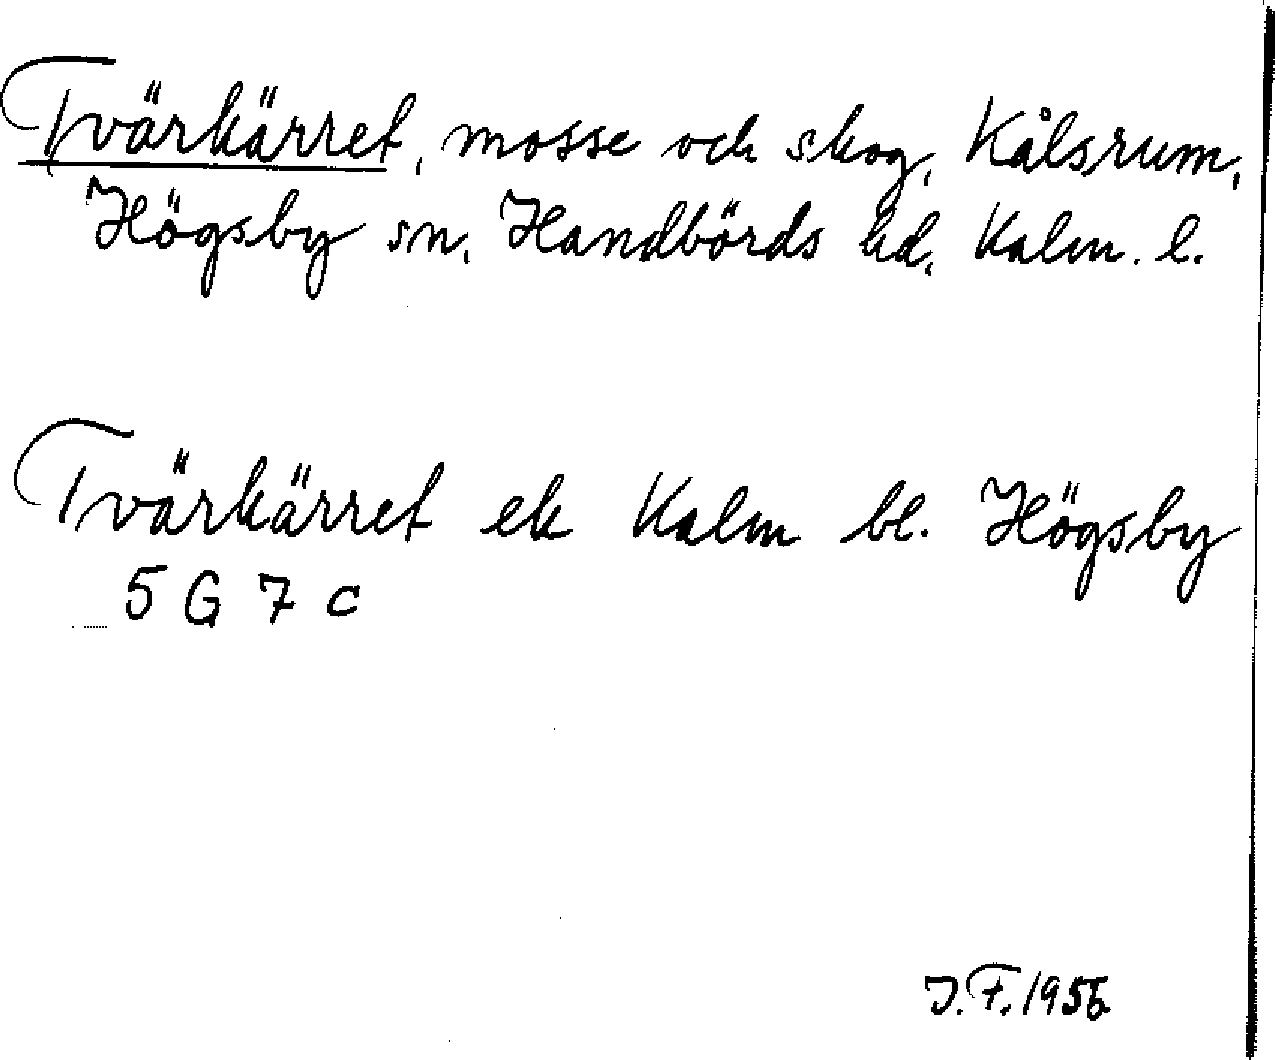 Tvärkärret, mosse och skog, Kålsrum,
Högsby sn, Handbörds hd, Kalm. l.
Tvärkärret ek Kalm bl. Högsby
5 G 7 c
J. F. 1956